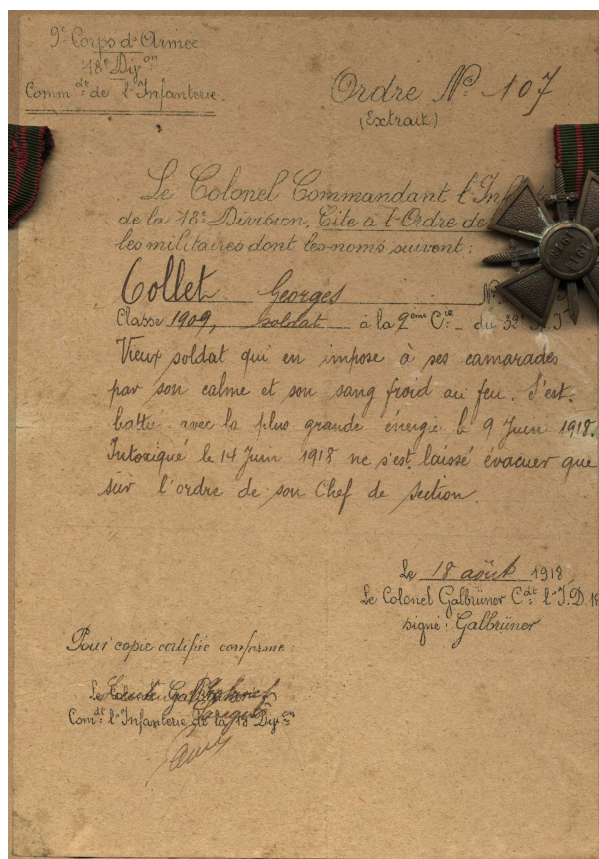 9e Corps d'Armée
18e Dion
Commdt de l'Infanterie.
Ordre No 107
(Extrait)
Le Colonel Commandant l'Inf
de la 18e Division, Cite à l'Ordre de
les militaires dont les noms suivent:
Collet Georges No
Classe 1909, soldat à la 2ème Cie du 32e
Vieux soldat qui en impose à ses camarades
par son calme et son sang froid au feu. S'est
battu avec la plus grande énergie le 9 Juin 1918.
Intoxiqué le 14 Juin 1918 ne s'est laissé évacuer que
sur l'ordre de son Chef de section.
Le 18 août 1918
Le Colonel Galbrüner Cdt l'I.D. 18
signé: Galbrüner
Pour copie certifiée conforme
Comdt l'Infanterie de la 18 Dion
1914 1918